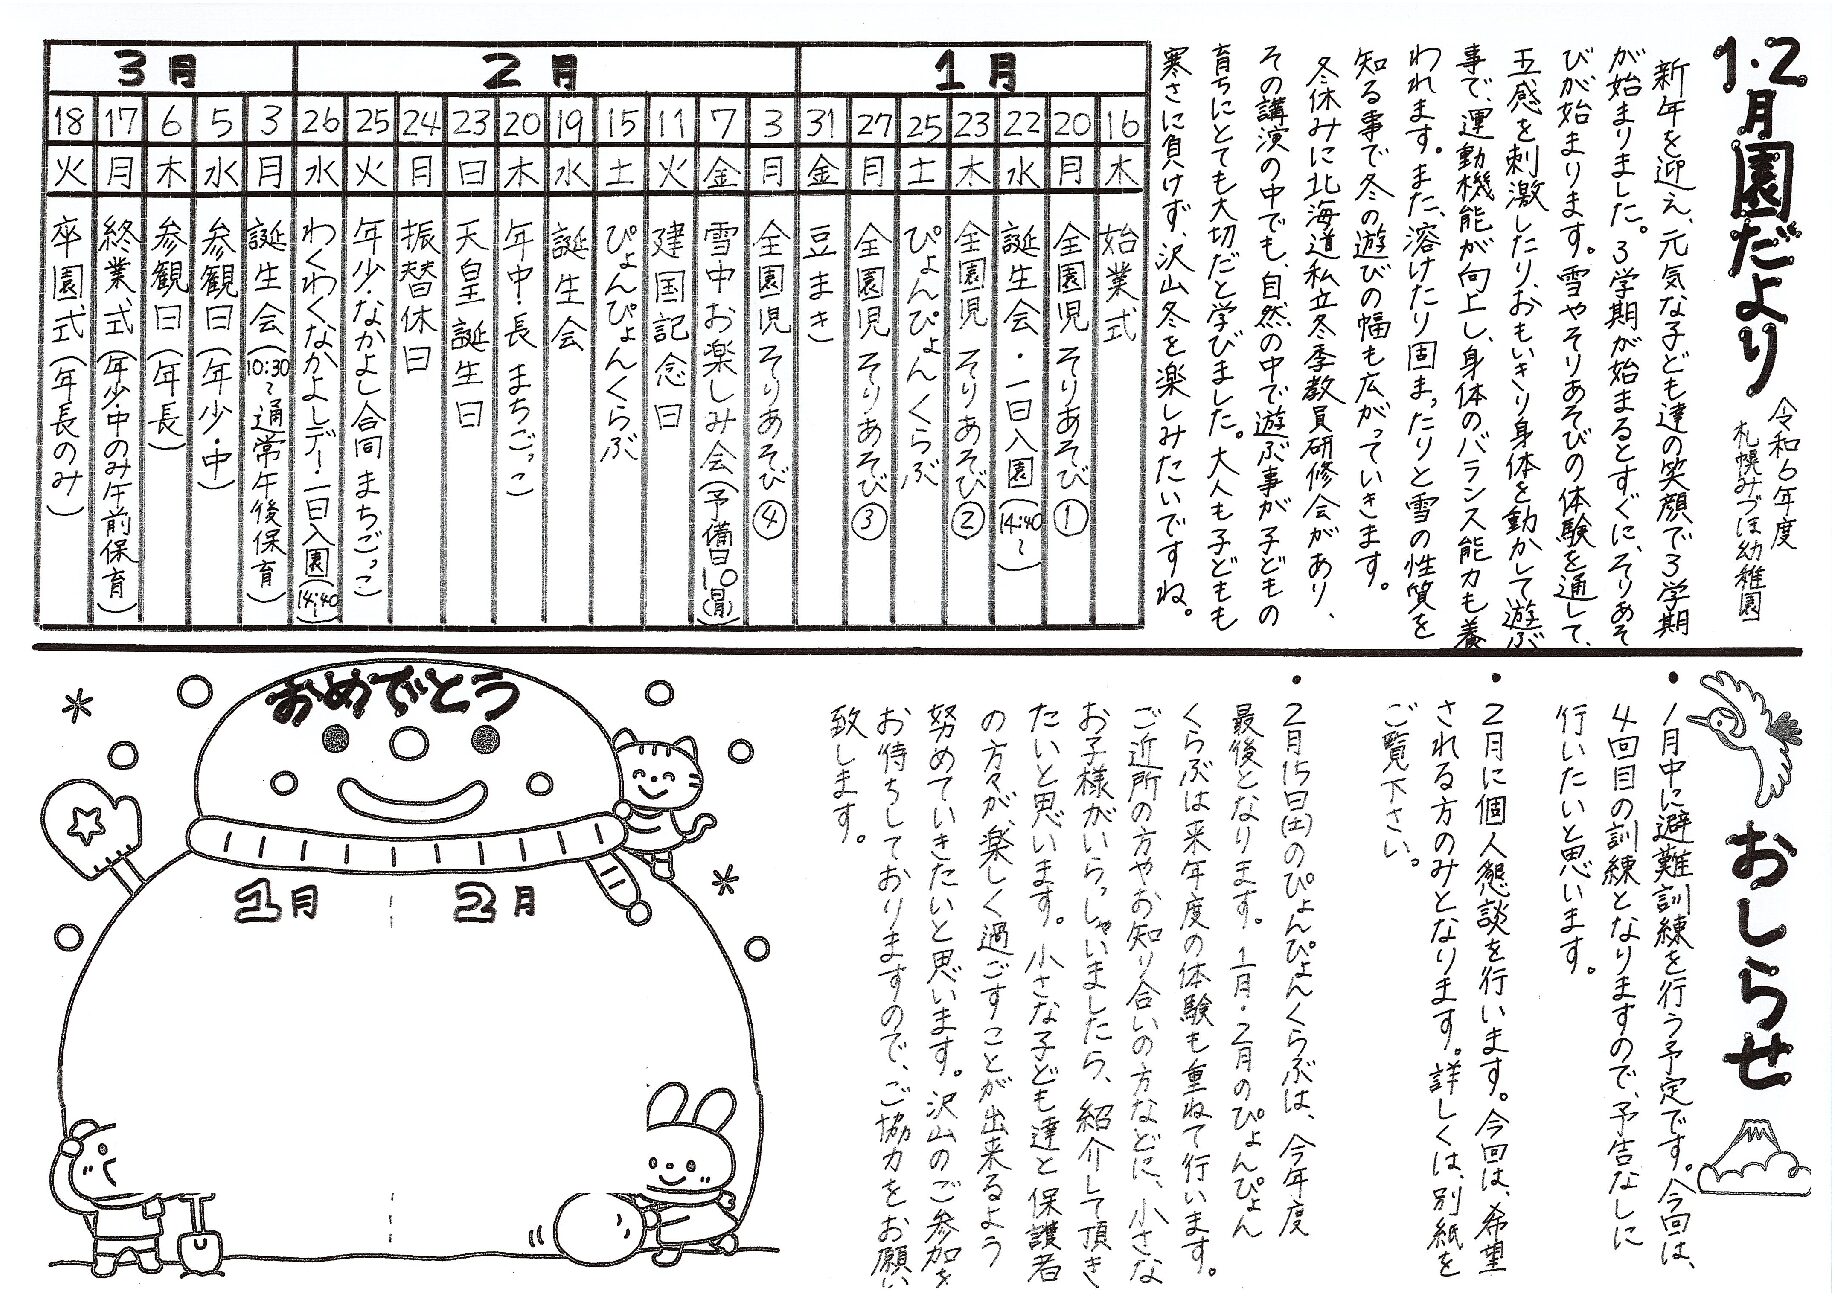 1・2月園だより
令和6年度
札幌みづほ幼稚園
新年を迎え、元気な子ども達の笑顔で3学期
が始まりました。3学期が始まるとすぐに、そりあそ
びが始まります。雪やそりあそびの体験を通して、
五感を刺激したり、おもいきり身体を動かして遊ぶ
事で、運動機能が向上し、身体のバランス能力も養
われます。また、溶けたり固まったりと雪の性質を
知る事で冬の遊びの幅も広がっていきます。
冬休みに北海道私立冬季教員研修会があり、
その講演の中でも、自然の中で遊ぶ事が子どもの
育ちにとても大切だと学びました。大人も子どもも
寒さに負けず、沢山冬を楽しみたいですね。
1月
16 木 始業式
20 月 全園児 そりあそび①
22 水 誕生会・一日入園(14:40〜)
23 木 全園児 そりあそび②
25 土 ぴょんぴょんくらぶ
27 月 全園児 そりあそび③
31 金 豆まき
2月
3 月 全園児 そりあそび④
7 金 雪中お楽しみ会(予備日10(月))
11 火 建国記念日
15 土 ぴょんぴょんくらぶ
19 水 誕生会
20 木 年中・長 まちごっこ
23 日 天皇誕生日
24 月 振替休日
25 火 年少・なかよし合同 まちごっこ
26 水 わくわくなかよしデー・一日入園(14:40〜)
3月
3 月 誕生会(10:30〜通常午後保育)
5 水 参観日(年少・中)
6 木 参観日(年長)
17 月 終業式(年少・中のみ午前保育)
18 火 卒園式(年長のみ)
おしらせ
・1月中に避難訓練を行う予定です。今回は、
4回目の訓練となりますので、予告なしに
行いたいと思います。
・2月に個人懇談を行います。今回は、希望
される方のみとなります。詳しくは、別紙を
ご覧下さい。
・2月15日(土)のぴょんぴょんくらぶは、今年度
最後となります。1月・2月のぴょんぴょん
くらぶは来年度の体験も重ねて行います。
ご近所の方やお知り合いの方などに、小さな
お子様がいらっしゃいましたら、紹介して頂き
たいと思います。小さな子ども達と保護者
の方々が、楽しく過ごすことが出来るよう
努めていきたいと思います。沢山のご参加を
お待ちしておりますので、ご協力をお願い
致します。
おめでとう
1月
2月